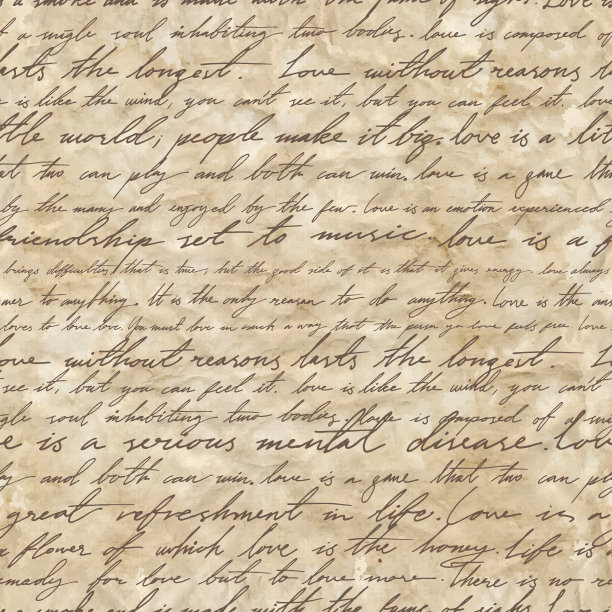 a smoke and is made with the fume of sighs. Love is
of a single soul inhabiting two bodies. love is composed of
lasts the longest. Love without reasons
is like the wind, you can't see it, but you can feel it. love
little world; people make it big. love is a lit
that two can play and both can win. love is a game tha
by the many and enjoyed by the few. Love is an emotion experienced
friendship set to music. love is a f
brings difficulties, that is true, but the good side of it is that it gives energy. love always
answer to anything. It is the only reason to do anything. Love is the ans
loves to love love. You must love in such a way that the person you love feels free love
love without reasons lasts the longest. L
see it, but you can feel it. love is like the wind, you can't
single soul inhabiting two bodies. love is composed of a sin
love is a serious mental disease. love
play and both can win. love is a game that two can pl
great refreshment in life. Love is a
a flower of which love is the honey. life is
remedy for love but to love more. There is no re
a smoke and is made with the fume of sighs. Love